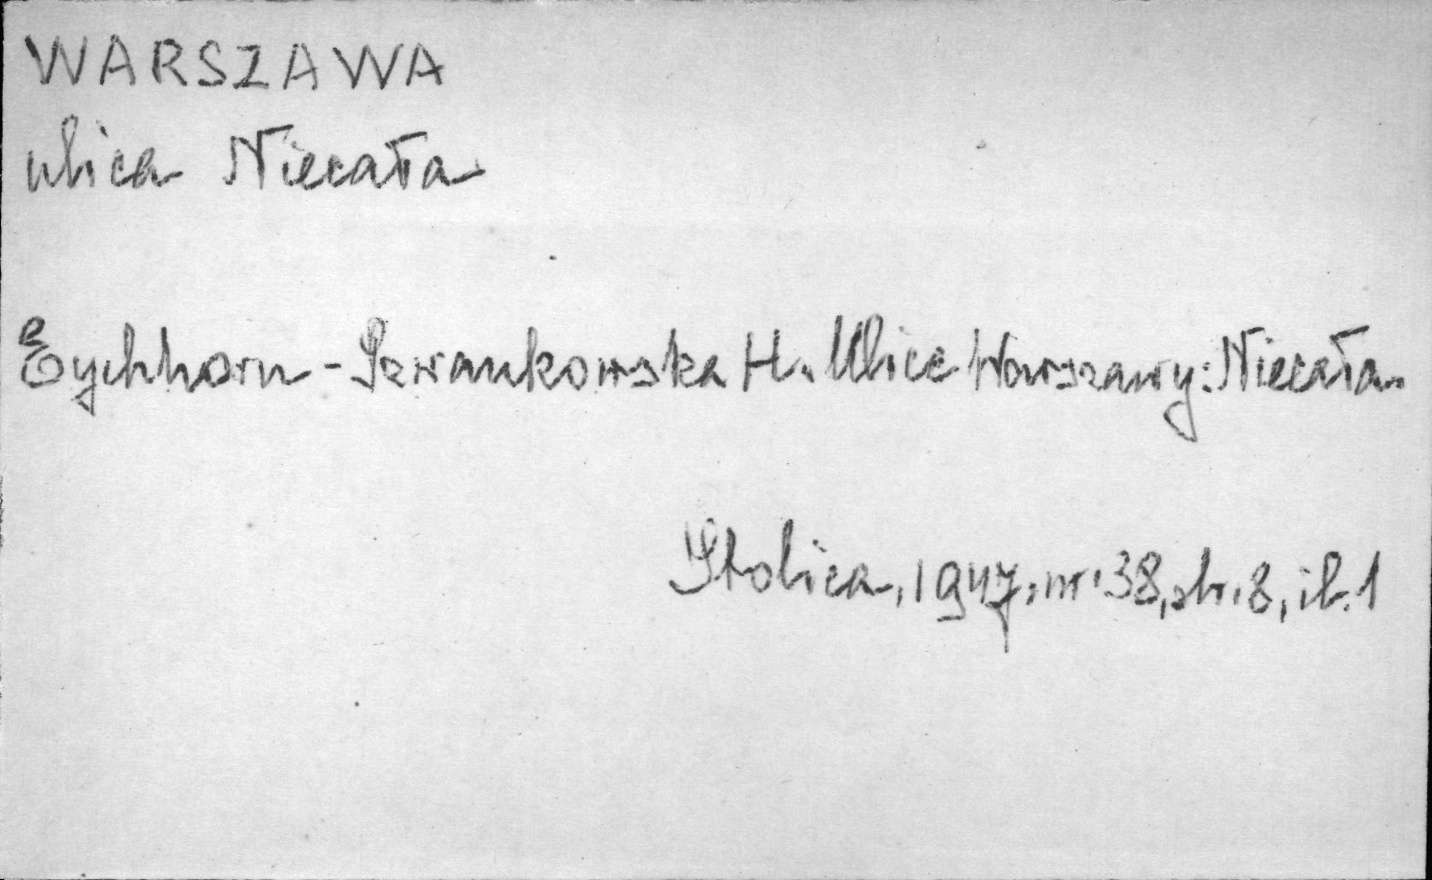 WARSZAWA
ulica Niecała
Eychhorn-Szwankowska H. Ulice Warszawy: Niecała.
Stolica, 1947, nr. 38, str. 8, il. 1